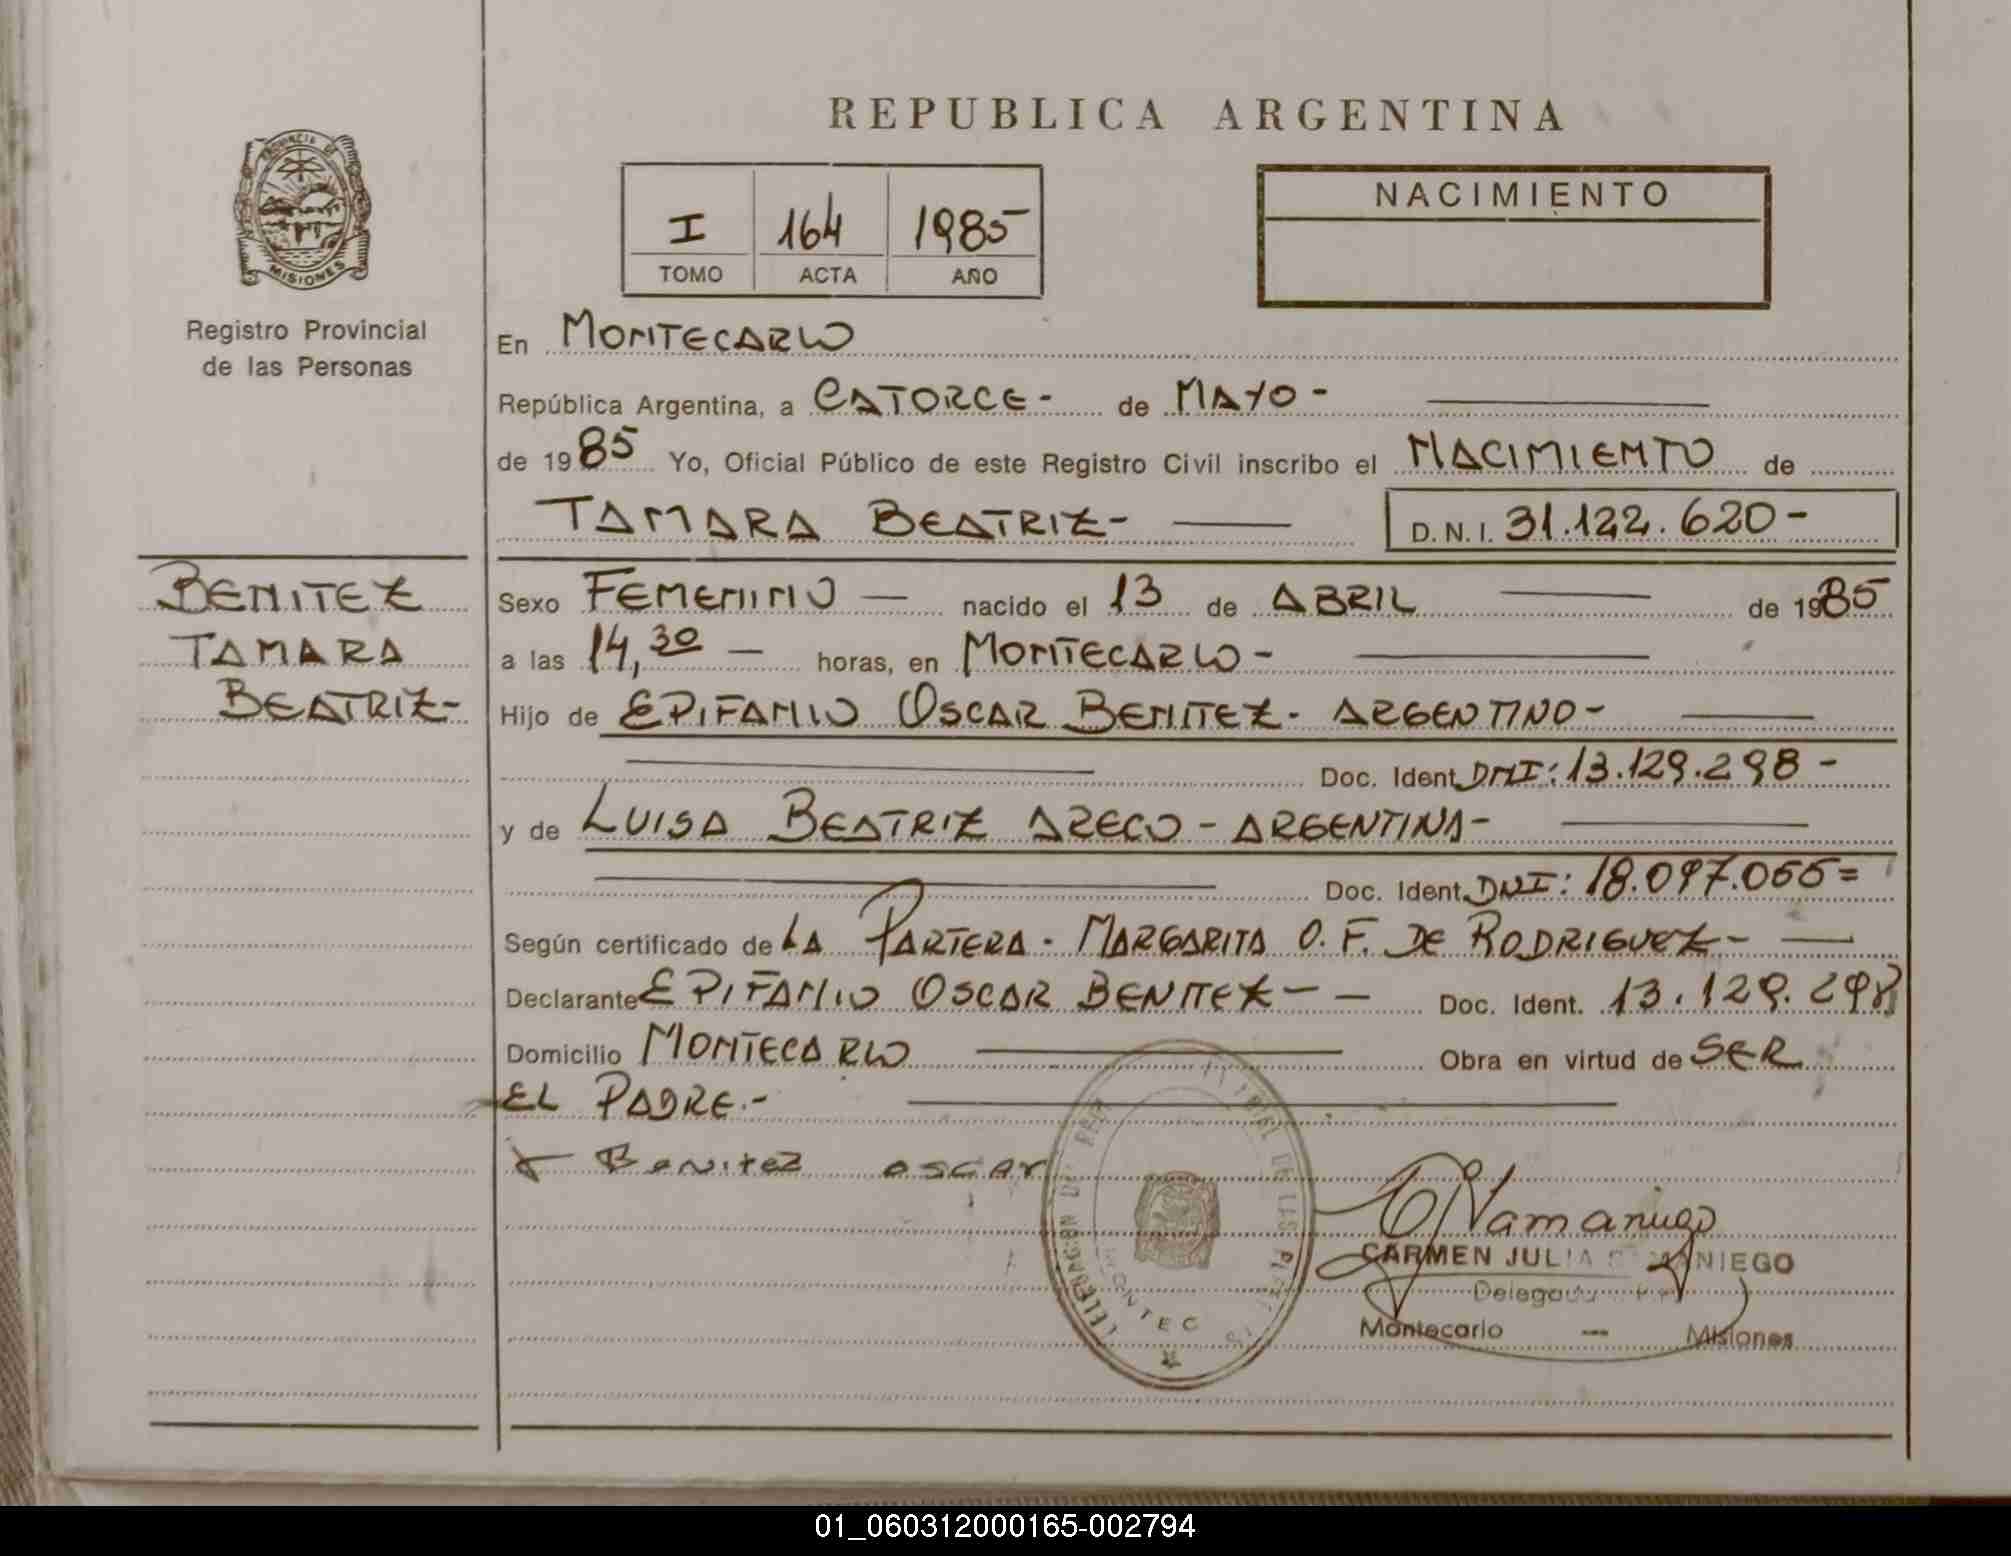 REPUBLICA ARGENTINA
PROVINCIA DE
MISIONES
Registro Provincial
de las Personas
I 164 1985
TOMO ACTA AÑO
NACIMIENTO
En MONTECARLO
República Argentina, a CATORCE- de MAYO-
de 1985 Yo, Oficial Público de este Registro Civil inscribo el NACIMIENTO de
TAMARA BEATRIZ- D.N.I. 31.122.620-
BENITEZ
TAMARA
BEATRIZ-
Sexo FEMENINO — nacido el 13 de ABRIL de 1985
a las 14,30 — horas, en MONTECARLO-
Hijo de EPIFANIO OSCAR BENITEZ- ARGENTINO-
Doc. Ident. DNI: 13.129.298-
y de LUISA BEATRIZ ARECO - ARGENTINA-
Doc. Ident. DNI: 18.097.055=
Según certificado de LA PARTERA- MARGARITA O. F. DE RODRIGUEZ-
Declarante EPIFANIO OSCAR BENITEZ- — Doc. Ident. 13.129.298
Domicilio MONTECARLO Obra en virtud de SER
EL PADRE.-
Benitez oscar
CARMEN JULIA
Montecarlo — Misiones
01_060312000165-002794